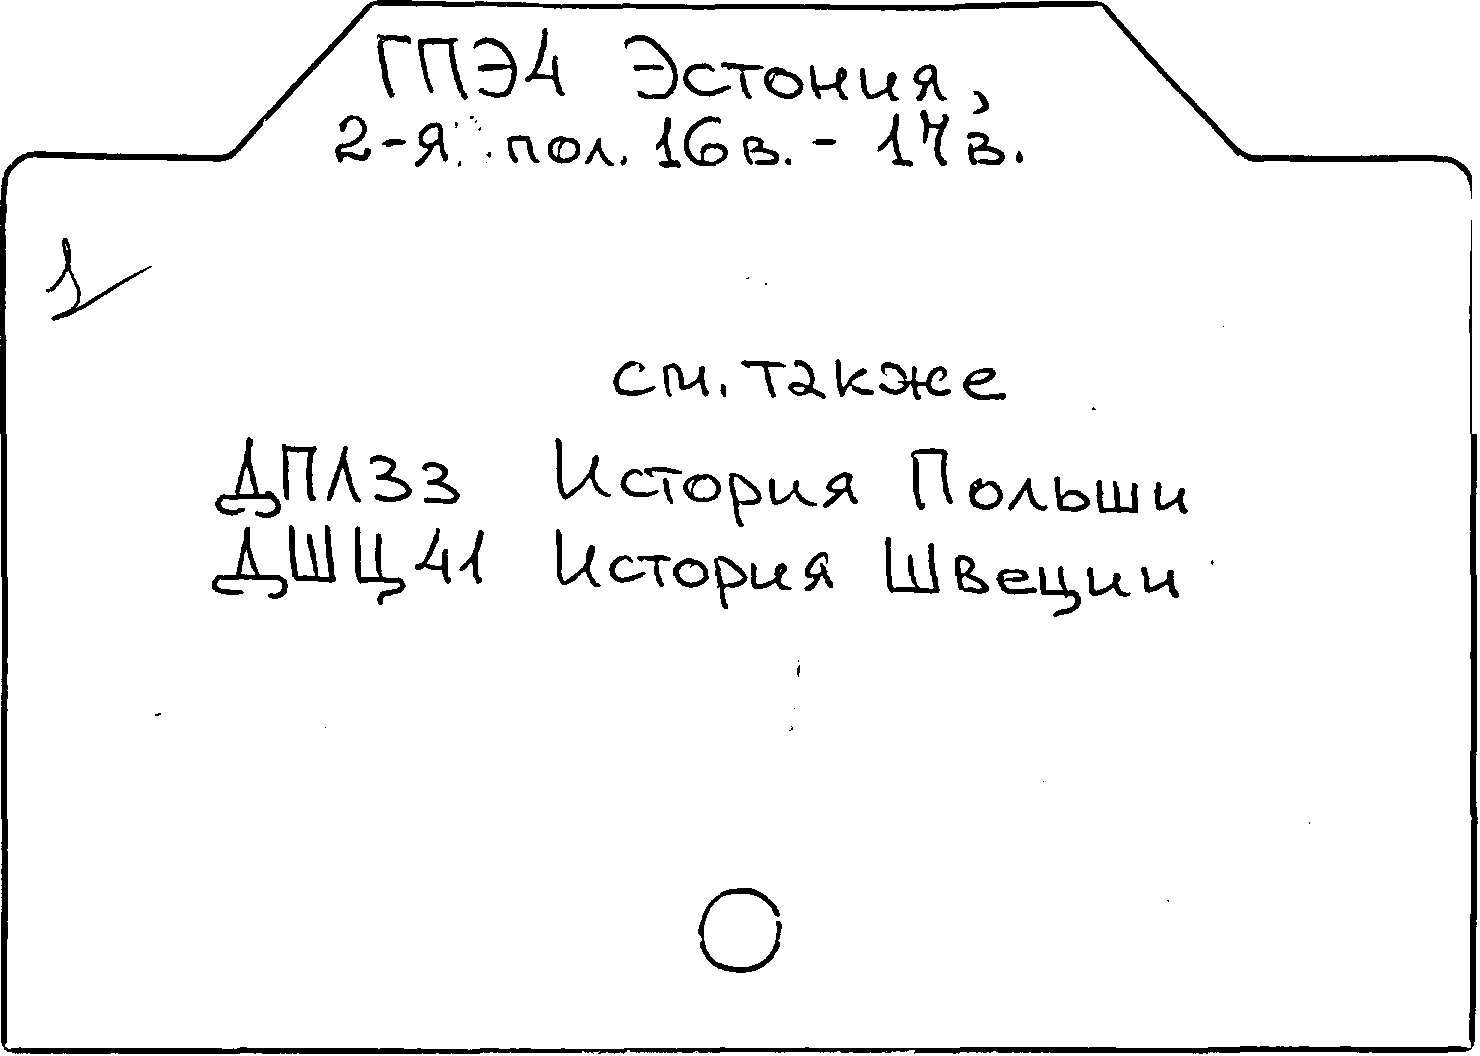 ГПЭ4 Эстония,
2-я пол. 16в. - 17в.
1
см. также
ДПЛ33 История Польши
ДШЦ41 История Швеции